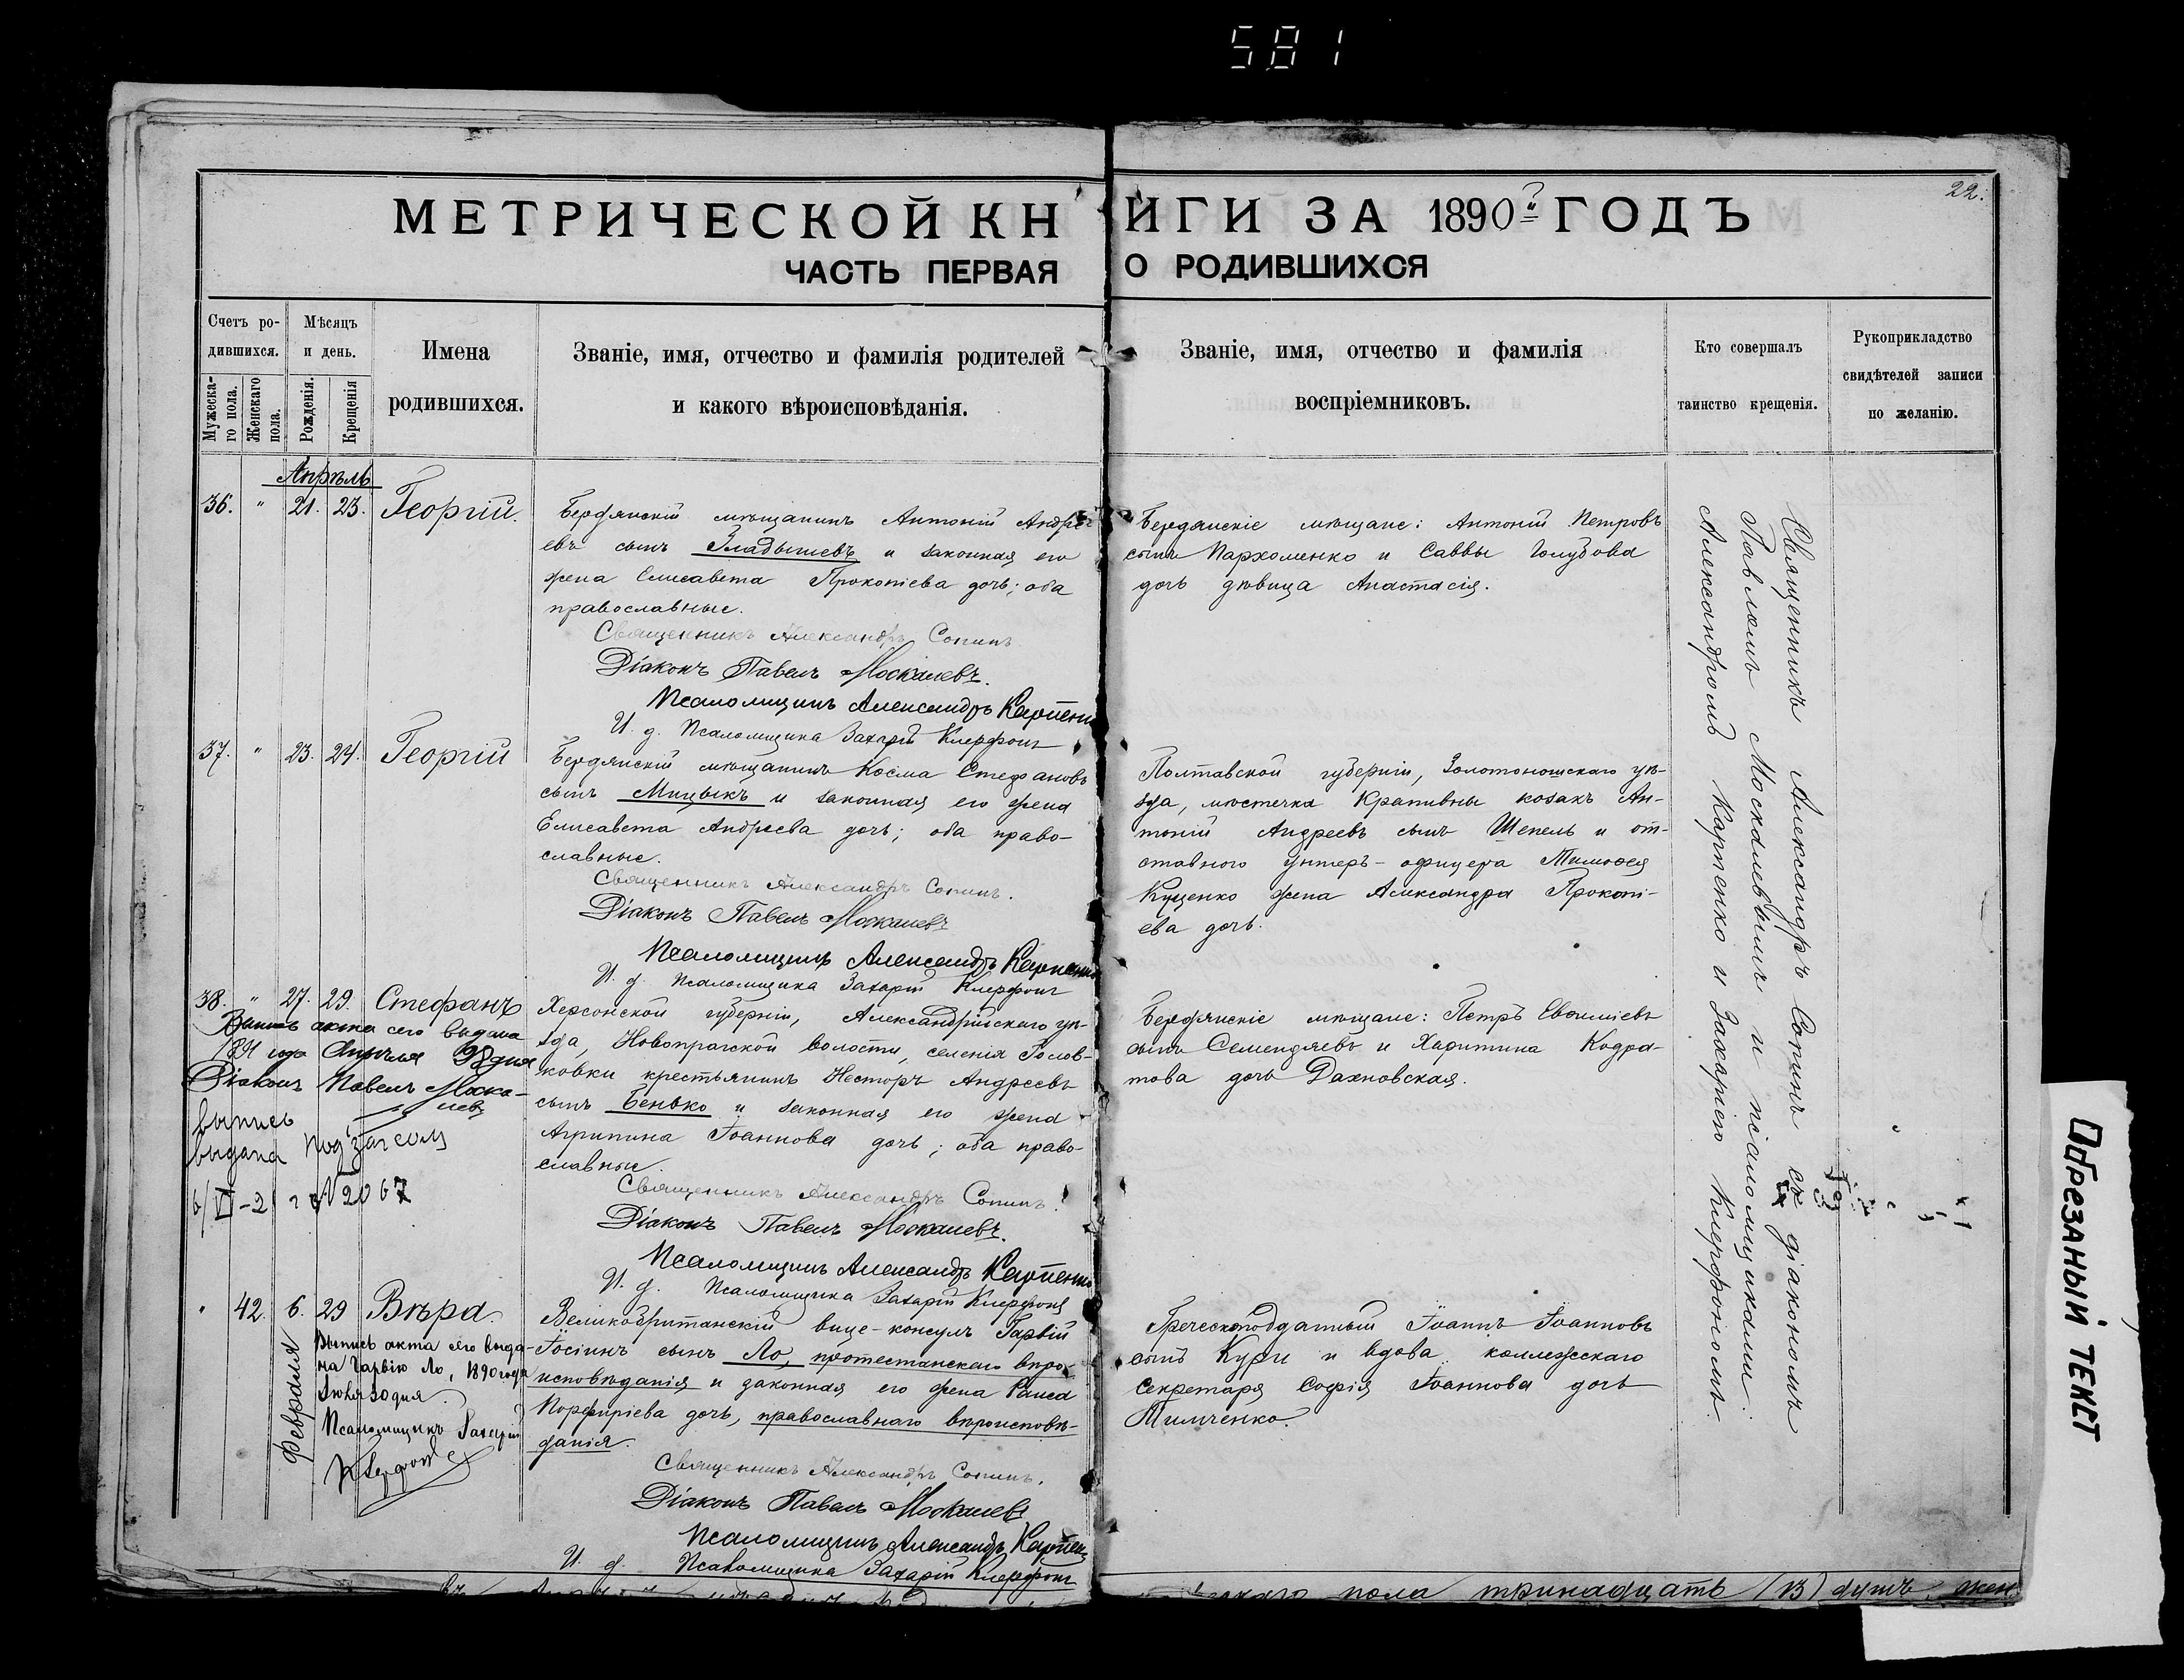 581
22.
МЕТРИЧЕСКОЙ КНИГИ ЗА 1890й ГОДЪ
ЧАСТЬ ПЕРВАЯ О РОДИВШИХСЯ
Счетъ родившихся.
Мужескаго пола.
Женскаго пола.
Мѣсяцъ и день.
Рожденія.
Крещенія
Имена родившихся.
Званіе, имя, отчество и фамилія родителей
и какого вѣроисповѣданія.
Званіе, имя, отчество и фамилія
воспріемниковъ.
Кто совершалъ
таинство крещенія.
Рукоприкладство
свидѣтелей записи
по желанію.
Апрѣль
36. " 21. 23. Георгій.
Бердянскій мѣщанинъ Антоній Андре
евъ сынъ Гладышевъ и законная его
жена Елисавета Прокопіева дочь; оба
православные.
Священникъ Александръ Сопинъ
Діаконъ Павелъ Москалевъ.
Псаломщикъ Александръ Карпенко
И. д. Псаломщика Захарій Клерфонъ
Бердянскіе мѣщане: Антоній Петровъ
сынъ Пархоменко и Саввы Голубова
дочь дѣвица Анастасія.
37. " 23. 24. Георгій
Бердянскій мѣщанинъ Косма Стефановъ
сынъ Мицыкъ и законная его жена
Елисавета Андреева дочь; оба право-
славные.
Священникъ Александръ Сопинъ.
Діаконъ Павелъ Москалевъ
Псаломщикъ Александръ Карпенко
И. д. Псаломщика Захарій Клерфонъ
Полтавской губерніи, Золотоношскаго уѣ-
зда, мѣстечка Крапивны козакъ Ан-
тоній Андреевъ сынъ Шепель и от-
ставного унтеръ-офицера Тимофея
Куценко жена Александра Прокопі-
ева дочь.
38. " 27. 29. Стефанъ
Выпись акта сего выдана
1891 года
Діаконъ Павелъ Моска-
левъ
Выпись
выдана
6/VI-2
Херсонской губерніи, Александрійскаго уѣ-
зда, Новопражской волости, селенія Голов-
ковки крестьянинъ Несторъ Андреевъ
сынъ Бенько и законная его жена
Агрипина Іоаннова дочь; оба право-
славные.
Священникъ Александръ Сопинъ.
Діаконъ Павелъ Москалевъ.
Псаломщикъ Александръ Карпенко
И. д. Псаломщика Захарій Клерфонъ
Бердянскіе мѣщане: Петръ Евфиміевъ
сынъ Семендяевъ и Харитина Кодра-
това дочь Дахновская.
" 42. 6. 29 Вѣра.
Февраля
Выпись акта сего выда-
на Гарвію Ло, 1890 года
Псаломщикъ Захарій
Клерфонъ
Великобританскій вице-консулъ Гарвій
Іосіинъ сынъ Ло, протестанскаго вѣро-
исповѣданія и законная его жена Раиса
Порфиріева дочь, православнаго вѣроисповѣ-
данія.
Священникъ Александръ Сопинъ.
Діаконъ Павелъ Москалевъ
Псаломщикъ Александръ Карпенко
И. д. Псаломщика Захарій Клерфонъ
Греческоподданный Іоаннъ Іоанновъ
сынъ Кури и вдова коллежскаго
Секретаря Софія Іоаннова дочь
Тимченко.
Священникъ Александръ Сопинъ съ діакономъ
Павломъ Москалевымъ и псаломщиками:
Александромъ Карпенко и Захаріею Клерфономъ.
пола тринадцать (13) душъ, жен
Обрезаный текст